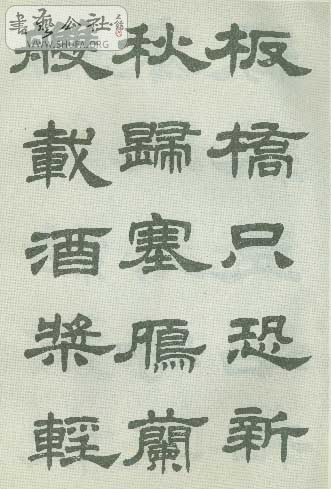 書藝公社
WWW.SHUFA.ORG
板橋只恐新
秋歸塞鴈蘭
艘載酒槳輕